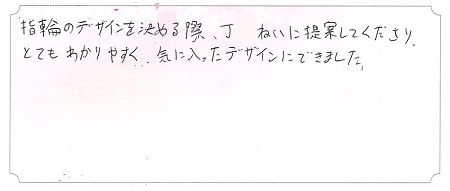 指輪のデザインを決める際、丁 ねいに提案してくださり、
とてもわかりやすく、気に入ったデザインにできました。